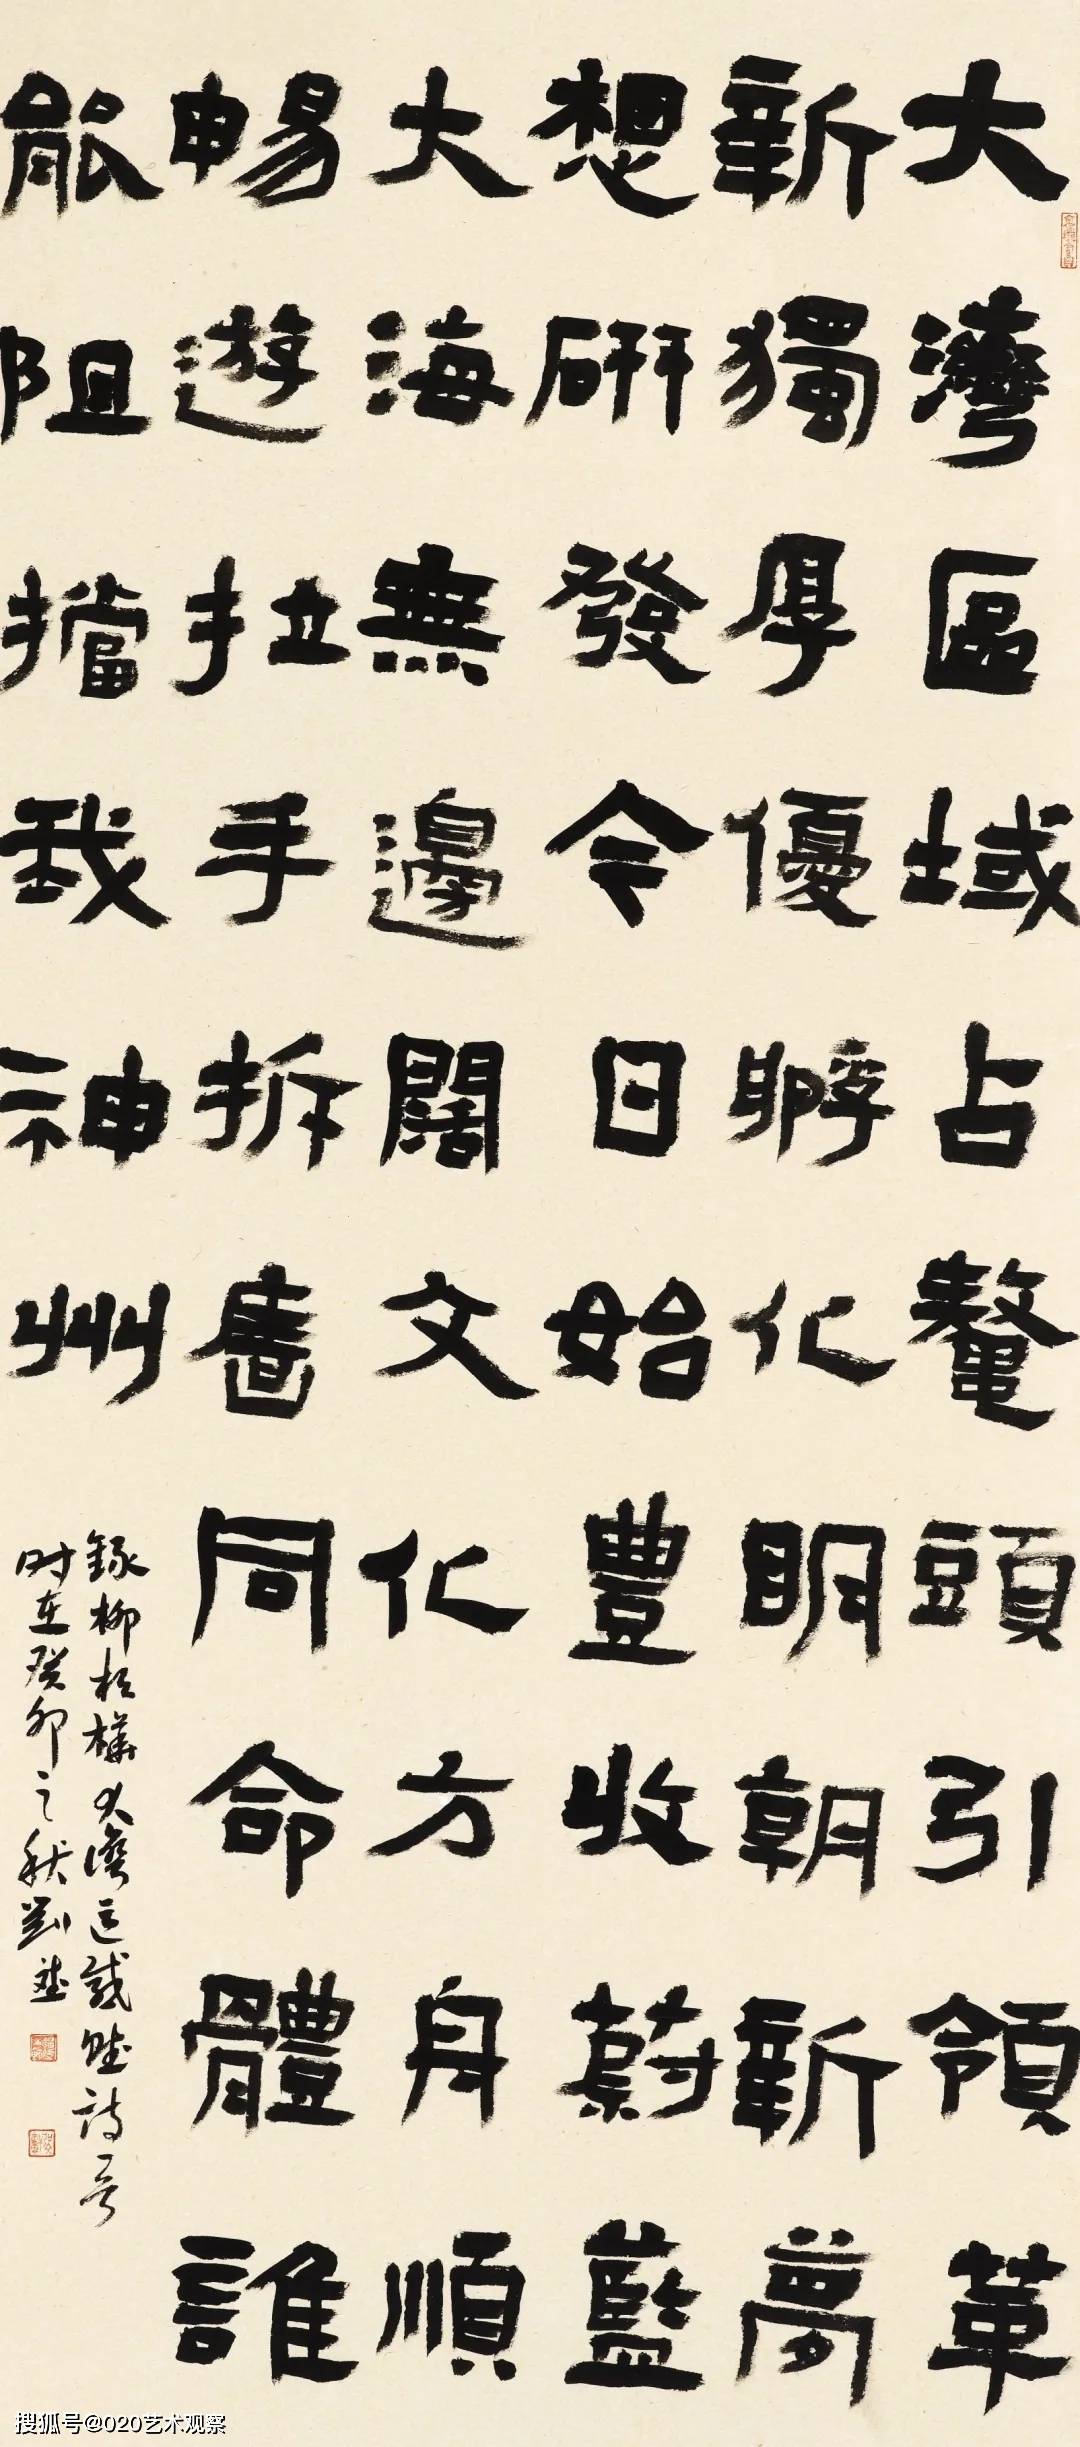 大灣區域占鰲頭引領革
新獨厚優孵化明朝新夢
想研發今日始豐收蔚藍
大海無邊闊文化方舟順
暢遊拉手拆牆同命體誰
能阻擋我神州
錄柳樺大灣區感賦詩一首
时在癸卯之秋劉
搜狐号@020艺术观察